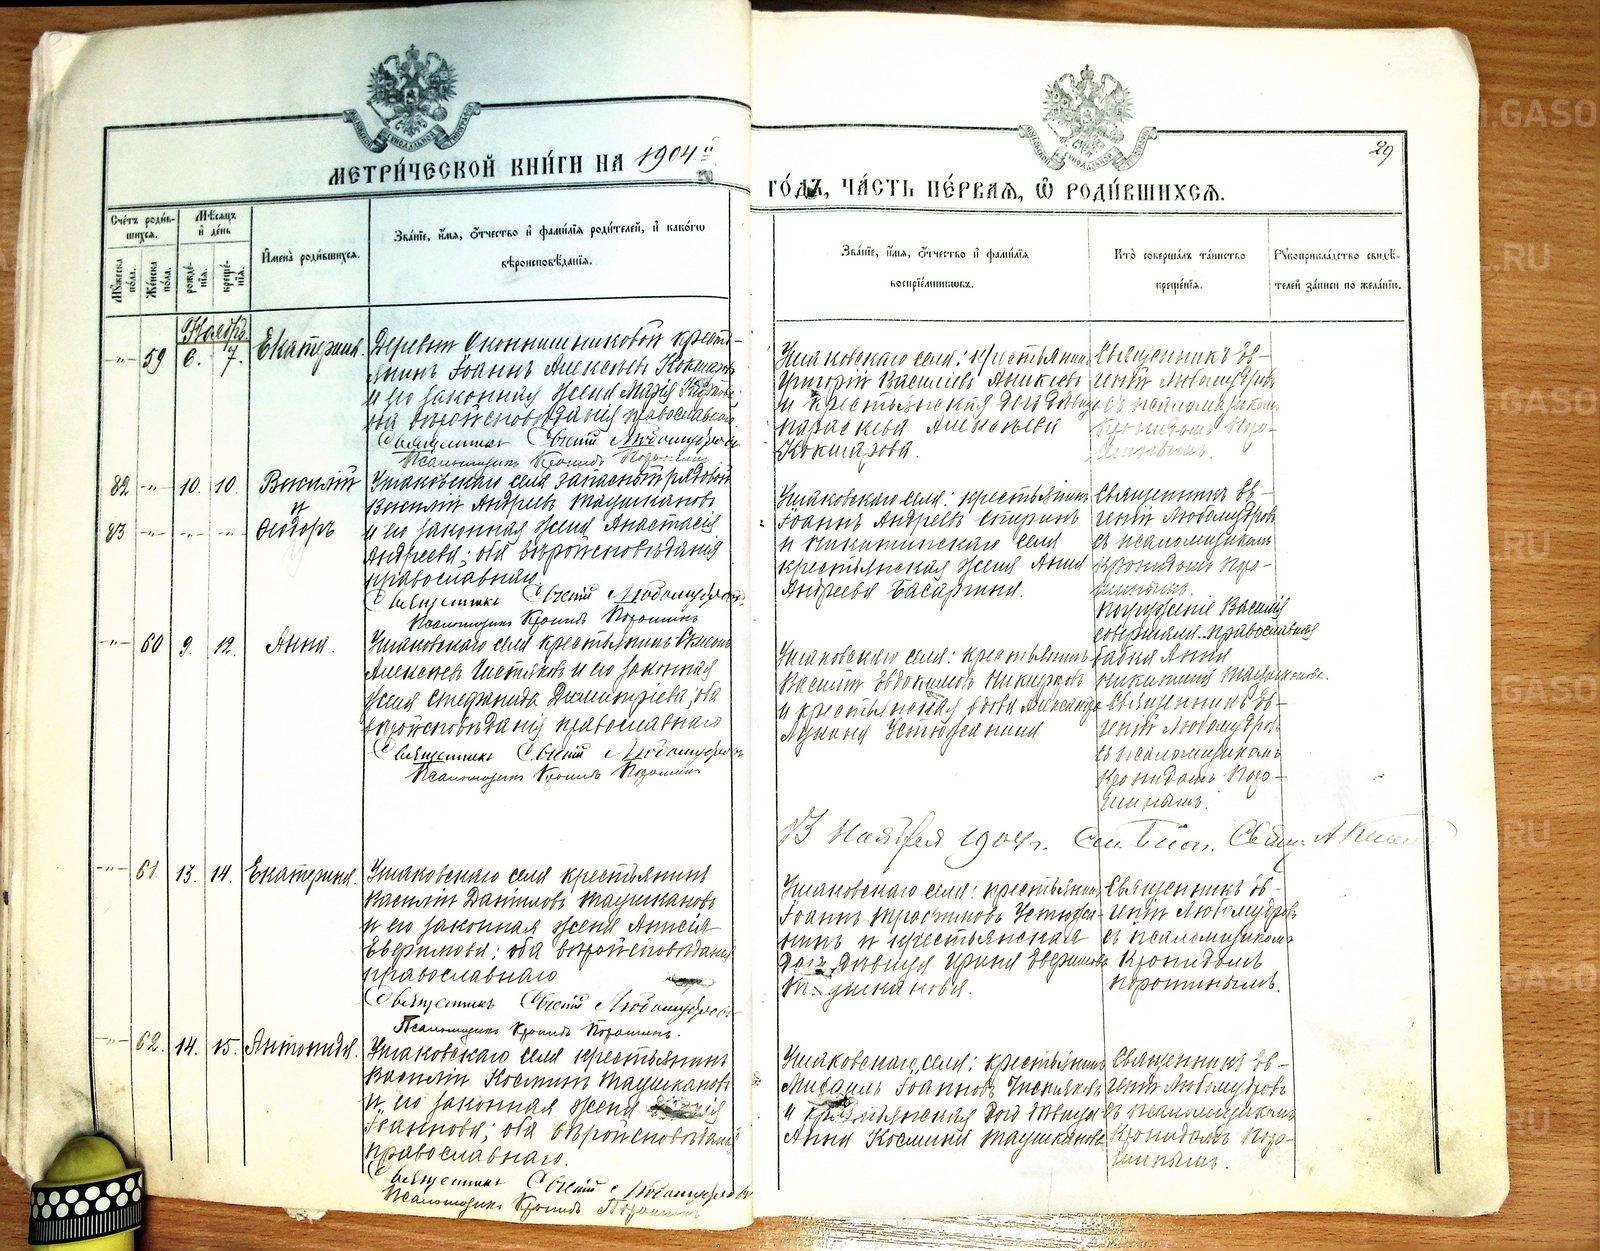 МЕТРИ́ЧЕСКОЙ КНИ́ГИ НА 1904й
ГО́ДЪ, ЧА́СТЬ ПЕ́РВАѦ, Ѡ҆ РОДИ́ВШИХСѦ.
29
Сче́тъ роди́в-
шихся.
Мѣ́сяцъ
и҆ де́нь
Мꙋ́жеска по́ла.
Же́нска по́ла.
рожде́-
нїя.
креще́-
нїя.
И҆мена̀ роди́вшихся.
Зва́нїе, и҆́мя, ѻ҆́тчество и҆ фами́лїя роди́телей, и҆ како́гѡ
вѣроисповѣ́данїя.
Зва́нїе, и҆́мя, ѻ҆́тчество и҆ фами́лїя
воспрїе́мникѡвъ.
Кто̀ соверша́лъ та́инство
креще́нїя.
Рꙋкоприкла́дство свидѣ́-
телей за́писи по жела́нїю.
Ноябрь.
-"- 59 6. 7. Екатерина.
Деревни крестья-
нинъ Іоаннъ Алексѣевъ Кокшаровъ
и его законная жена Марія
вѣроисповѣданія православнаго.
Священникъ Евгеній Любомудровъ
Псаломщикъ Кронидъ Порошинъ
Ушаковскаго села: крестьянинъ
Григорій Василіевъ Аникіевъ
и крестьянская дочь девица
Параскева Алексѣева
Кокшарова.
Священникъ Ев-
геній Любомудровъ
съ псаломщикомъ
Кронидомъ Поро-
шинымъ.
82 -"- 10. 10. Василій
и
83 -"- -"- -"- Ѳеодоръ
Ушаковскаго села запасный рядовой
Василій Андреевъ Таушкановъ
и его законная жена Анастасія
Андреева; оба вѣроисповѣданія
православнаго
Священникъ Евгеній Любомудровъ
Псаломщикъ Кронидъ Порошинъ
Ушаковскаго села: крестьянинъ
Іоаннъ Андреевъ
и Никитинскаго села
крестьянская жена Анна
Андреева Басаргина.
Священникъ Ев-
геній Любомудровъ
съ псаломщикомъ
Кронидомъ Поро-
шинымъ.
погруженіе Василія
совершала православная
бабка Анна
Никитина Таушканова.
-"- 60 9. 12. Анна.
Ушаковскаго села крестьянинъ
Алексѣевъ Чистяковъ и его законная
жена Стефанида Димитріева; оба
вѣроисповѣданія православнаго
Священникъ Евгеній Любомудровъ
Псаломщикъ Кронидъ Порошинъ
Ушаковскаго села: крестьянинъ
Василій Евдокимовъ
и крестьянская вдова Александра
Устюжанина
Священникъ Ев-
геній Любомудровъ
съ псаломщикомъ
Кронидомъ Поро-
шинымъ.
13 Ноября 1904 г.
-"- 61. 13. 14. Екатерина.
Ушаковскаго села крестьянинъ
Василій Даниловъ Таушкановъ
и его законная жена Анисія
Евфимова; оба вѣроисповѣданія
православнаго
Священникъ Евгеній Любомудровъ
Псаломщикъ Кронидъ Порошинъ.
Ушаковскаго села: крестьянинъ
Іоаннъ Трофимовъ Устюжа-
нинъ и крестьянская
дочь девица Ирина Евфимова
Священникъ Ев-
геній Любомудровъ
съ псаломщикомъ
Кронидомъ
Порошинымъ.
-"- 62. 14. 15. Антонида.
Ушаковскаго села крестьянинъ
Василій Космин Таушкановъ
и его законная жена
Іоаннова; оба вѣроисповѣданія
православнаго.
Священникъ Евгеній Любомудровъ
Псаломщикъ Кронидъ Порошинъ
Ушаковскаго села: крестьянинъ
Михаилъ Іоанновъ Чистяковъ
и крестьянская дочь девица
Анна Космина Таушканова
Священникъ Ев-
геній Любомудровъ
съ псаломщикомъ
Кронидомъ Поро-
шинымъ.